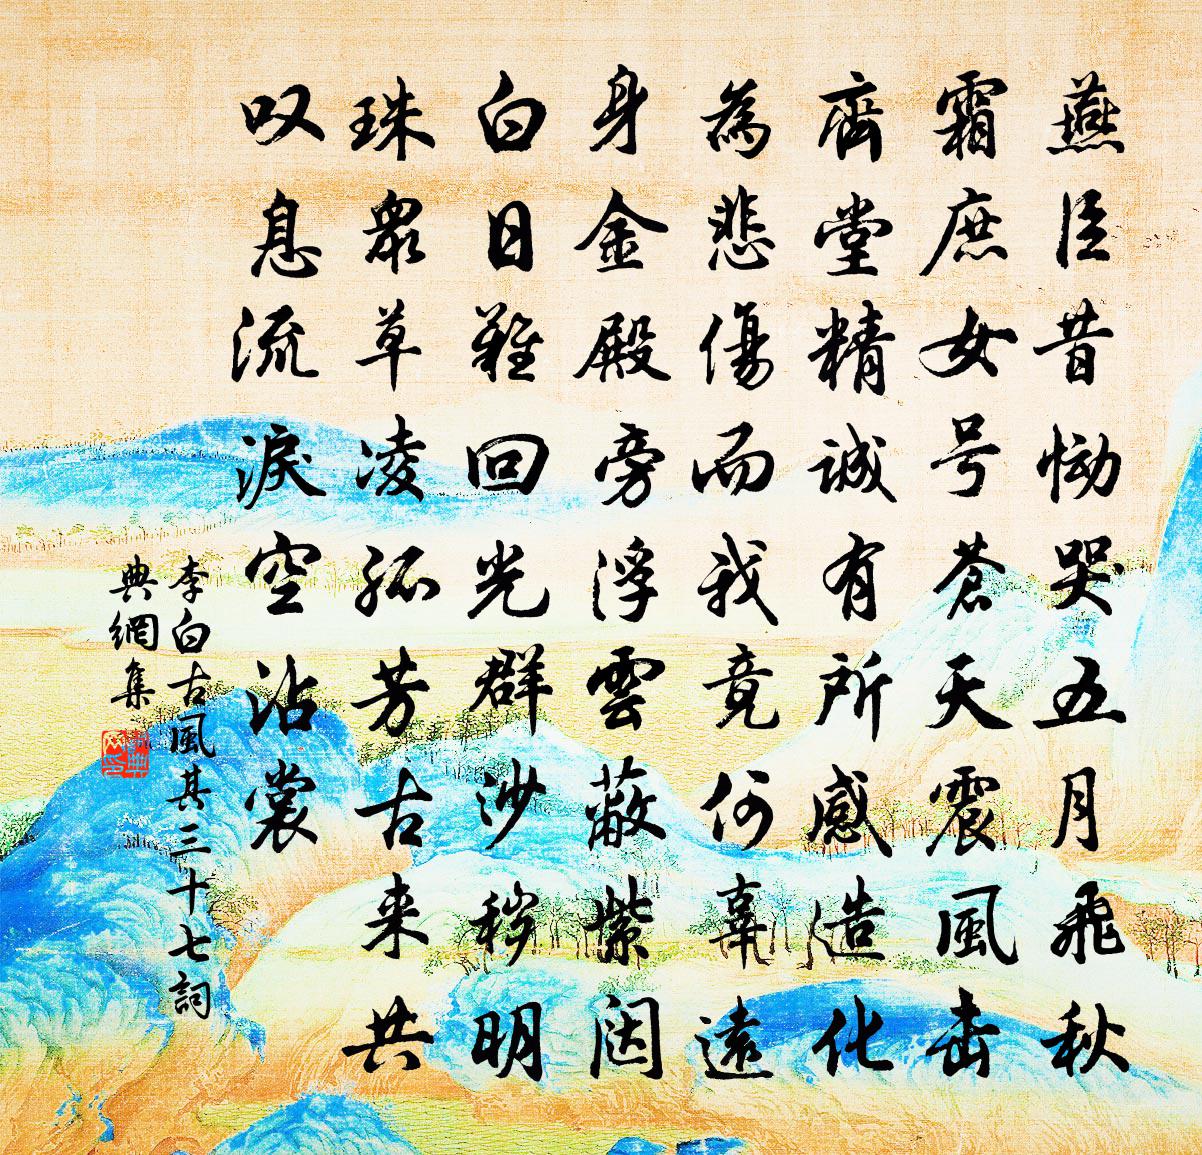 燕臣昔恸哭五月飛秋
霜庶女号蒼天震風击
齊堂精诚有所感造化
為悲傷而我竟何辜遠
身金殿旁浮雲蔽紫闼
白日难回光群沙秽明
珠眾草凌孤芳古来共
叹息流淚空沾裳
李白古風其三十七詞
典網集